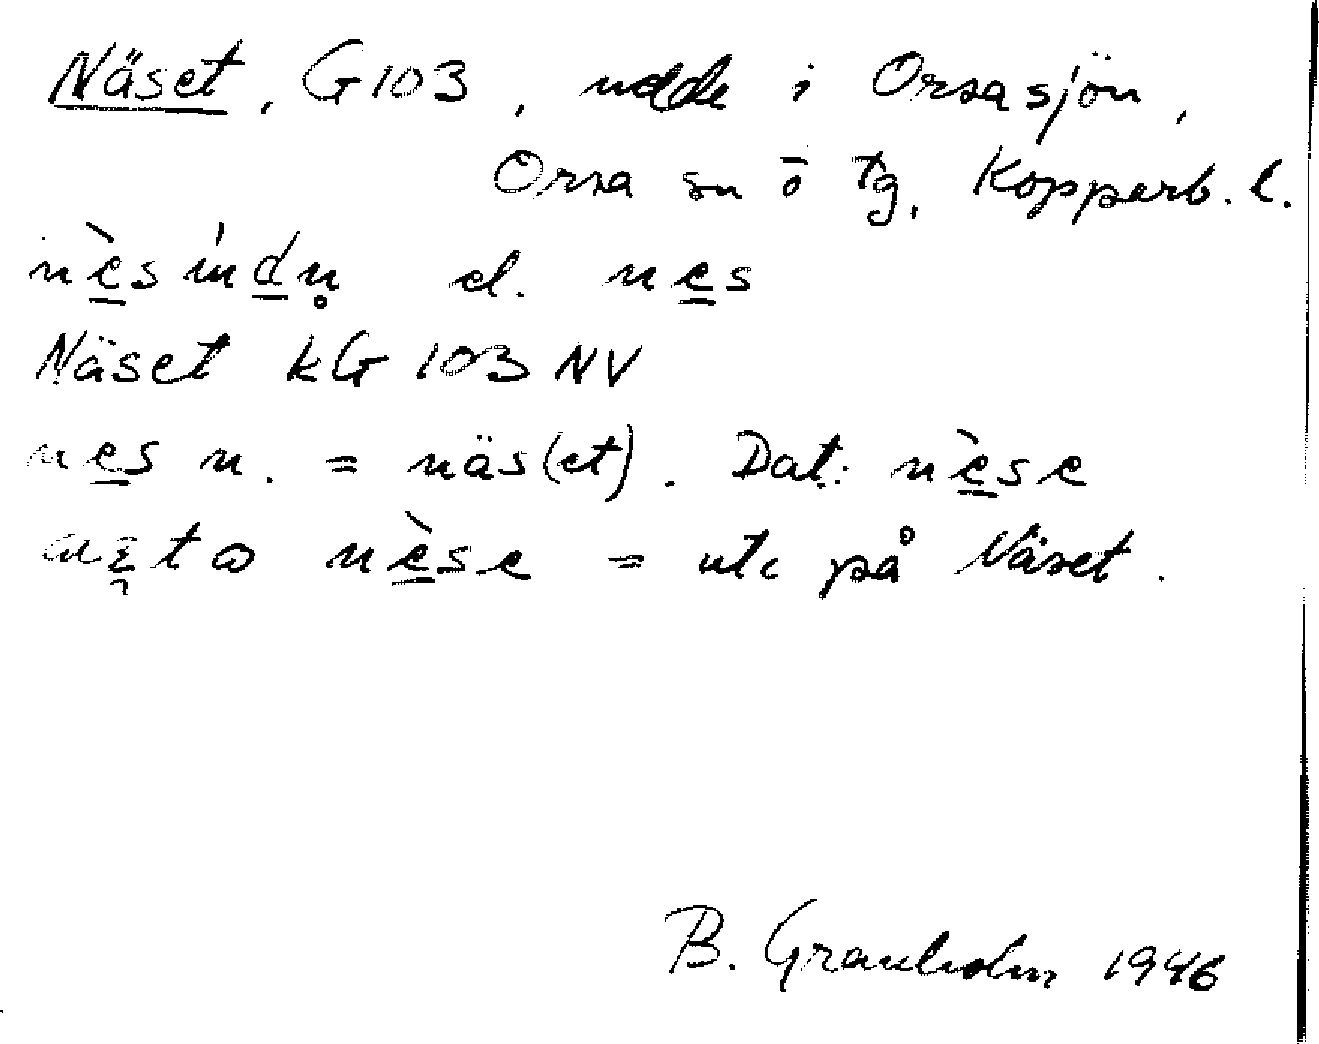 Näset, G103, udde i Orsasjön,
Orsa sn ö tg, Kopparb. l.
nès índn̥ el. nes
Näset kG 103 NV
nes n. = näs(et). Dat: nèse
nèse = ute på Näset.
B. Granholm 1946